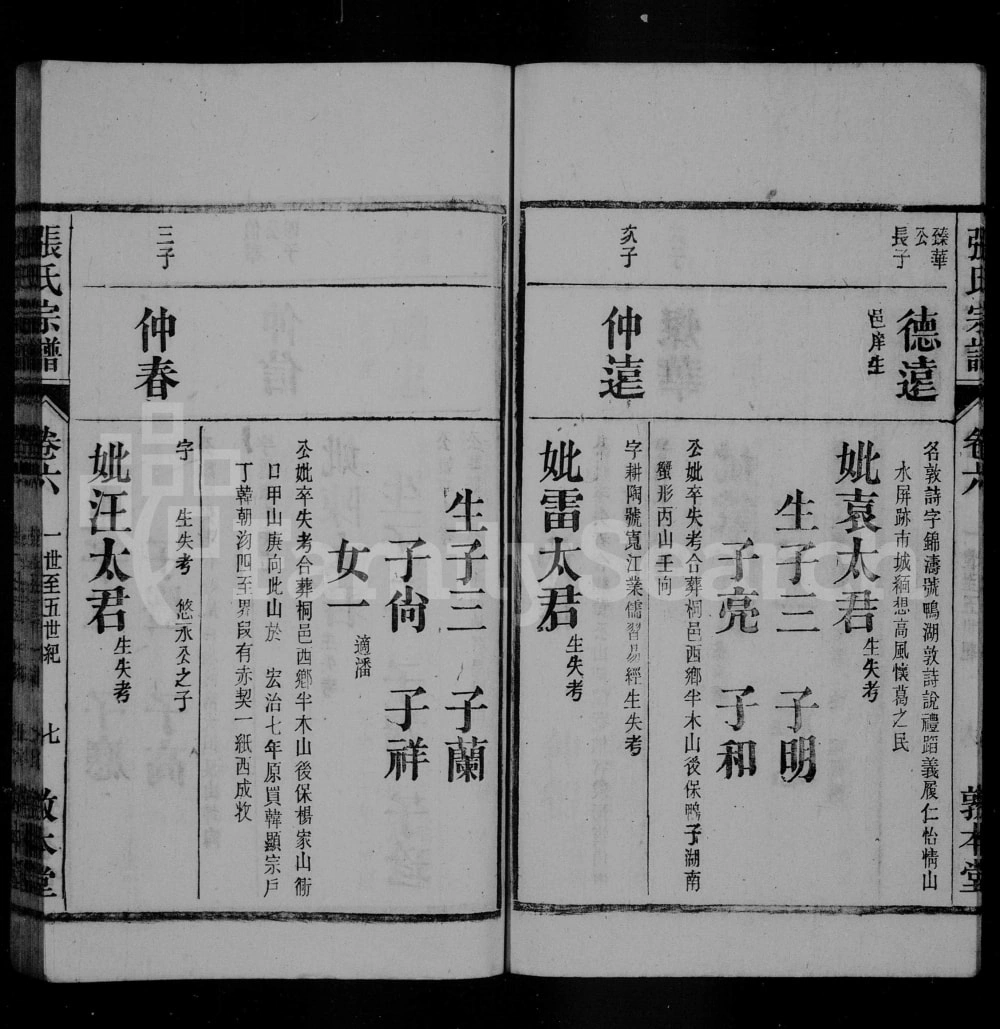 張氏宗譜
卷六
敦本堂
臻華
公
長子
德遠
邑庠生
名敦詩字錦濤號鴨湖敦詩說禮蹈義履仁怡情山
水屏跡市城緬想高風懷葛之民
妣袁太君生失考
生子三 子明
子亮 子和
公妣卒失考合葬桐邑西鄉半木山後保鴨子湖南
蟹形丙山壬向
次子
仲遠
字耕陶號寬江業儒習易經生失考
妣雷太君生失考
生子三 子蘭
子尙 子祥
女一
適潘
公妣卒失考合葬桐邑西鄉半木山後保楊家山衕
口甲山庚向此山於 宏治七年原買韓顯宗戶
丁韓朝洵四至界段有赤契一紙西成收
三子
仲春
字 生失考 悠永公之子
妣汪太君生失考
張氏宗譜
卷六
一世至五世紀
七
敦本堂
FamilySearch